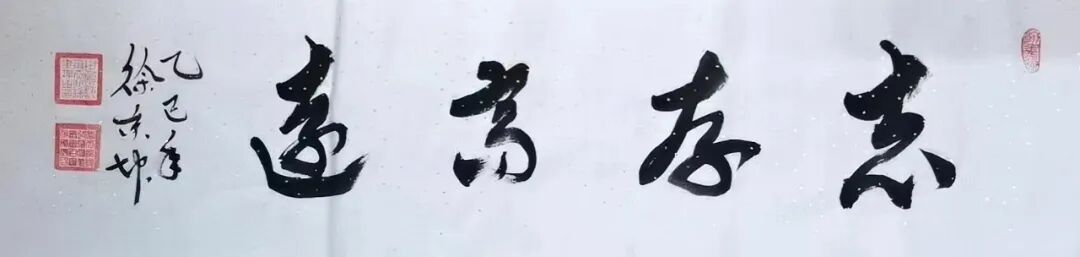 志存高遠
乙巳年
徐东坤